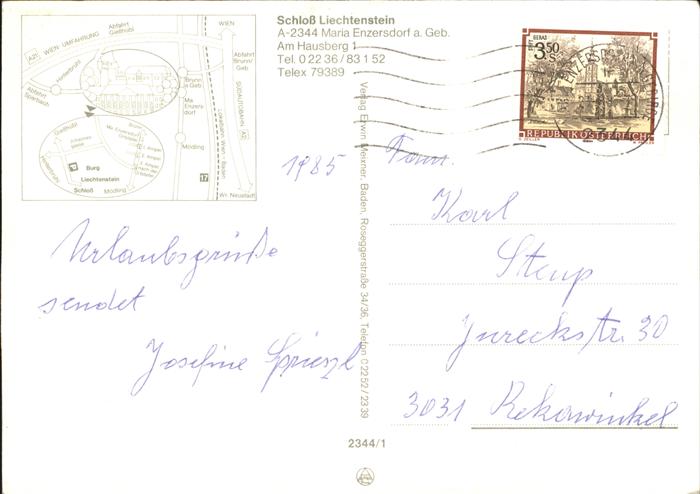 Schloß Liechtenstein
A-2344 Maria Enzersdorf a. Geb.
Am Hausberg 1
Tel. 0 22 36 / 83 1 52
Telex 79389
WIEN
Abfahrt
Gießhübl
A21 WIEN UMFAHRUNG
Hinterbrühl
Abfahrt
Sparbach
Brunn
a. Geb.
Ma.
Enzers-
dorf
Mödling
Abfahrt
Brunn/
Geb.
SÜDAUTOBAHN A2
Wr. Neustadt
17
Gießhübl
Hinterbrühl
Burg
Liechtenstein
Schloß
Mödling
GERAS
3,50
S
REPUBLIK ÖSTERREICH
Verlag Erwin Meixner, Baden, Roseggerstraße 34/36, Telefon 02252/2339
1985
Fam.
Karl
Steup
Jureckstr. 30
3031 Rekawinkel
Urlaubsgrüße
sendet
Josefine
2344/1